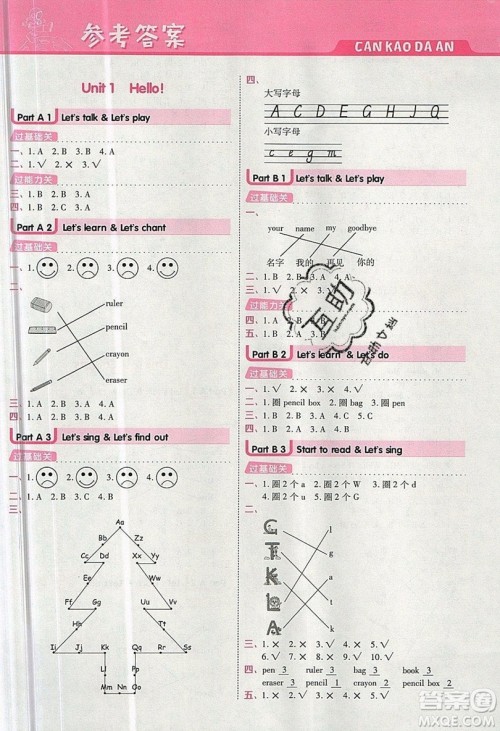 参考答案
CANKAO DA AN
Unit 1 Hello!
Part A 1 Let's talk & Let's play
过基础关
一、1. A 2. B 3. B 4. A
二、1. √ 2. × 3. × 4. √
过能力关
三、1. B 2. A 3. A
Part A 2 Let's learn & Let's chant
过基础关
一、1. 2. 3. 4.
二、
ruler
pencil
crayon
eraser
三、1. A 2. A 3. B 4. B
四、1. A 2. B 3. A 4. B
Part A 3 Let's sing & Let's find out
过基础关
一、1. 2. 3. 4.
二、
Aa
Bb Cc
Dd Ee
Ff Gg
Hh
Ii Jj Kk Rr Ss
Ll Pp
Mm Nn Oo
四、
大写字母
A C D E G H I J Q
小写字母
c e g m
Part B 1 Let's talk & Let's play
过基础关
一、
your name my goodbye
名字 我的 再见 你的
二、1. B 2. B 3. A
过能力关
Part B 2 Let's learn & Let's do
过基础关
一、1. √ 2. × 3. × 4. √ 5. √
二、1. 圈 pencil box 2. 圈 bag 3. 圈 pen
Part B 3 Start to read & Let's sing
过基础关
一、1. 圈 2 个 a 2. 圈 2 个 g 3. 圈 2 个 e
二、
C l
T g
K a
L c
A t
k
三、1. × 2. × 3. √ 4. × 5. √
6. √ 7. × 8. √ 9. √ 10. √
四、pen 3 ruler 3 bag 3 book 3
eraser 3 pencil 1 pencil box 2
互助
互助文档
答案圈
MXQE.COM